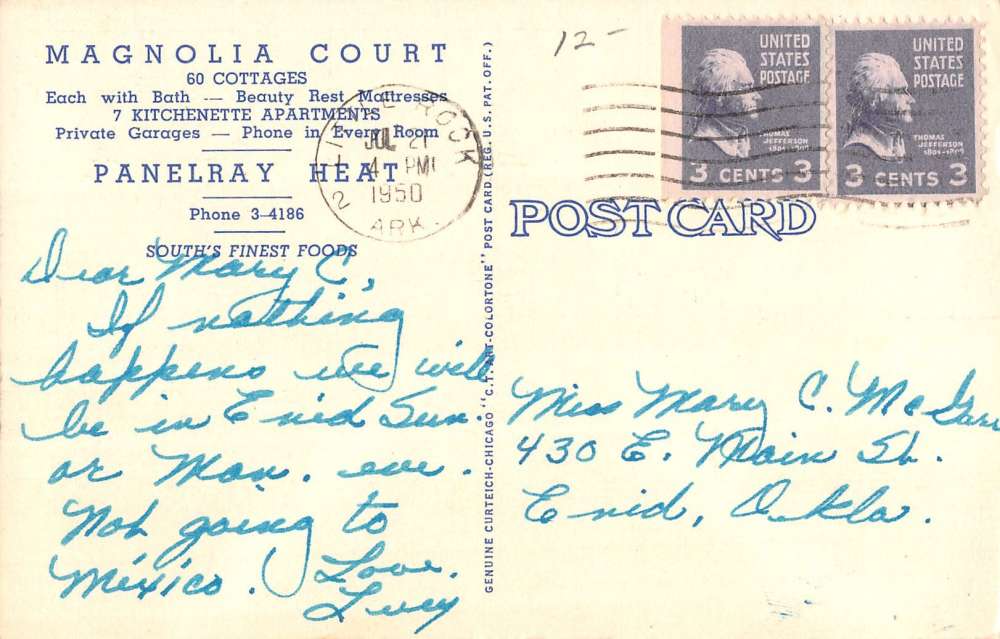 MAGNOLIA COURT
60 COTTAGES
Each with Bath — Beauty Rest Mattresses
7 KITCHENETTE APARTMENTS
Private Garages — Phone in Every Room
PANELRAY HEAT
Phone 3-4186
SOUTH'S FINEST FOODS
LITTLE ROCK
2
JUL 21
4 PM
1950
ARK.
12-
UNITED
STATES
POSTAGE
THOMAS
JEFFERSON
1801-1809
3 CENTS 3
UNITED
STATES
POSTAGE
THOMAS
JEFFERSON
1801-1809
3 CENTS 3
POST CARD
GENUINE CURTEICH-CHICAGO "C.T. ART-COLORTONE" POST CARD (REG. U.S. PAT. OFF.)
Dear Mary C,
If nothing
happens we will
be in Enid Sun.
or Mon. eve.
Not going to
México. Love.
Lucy
Miss Mary C. McGarr
430 E. Main St.
Enid, Okla.